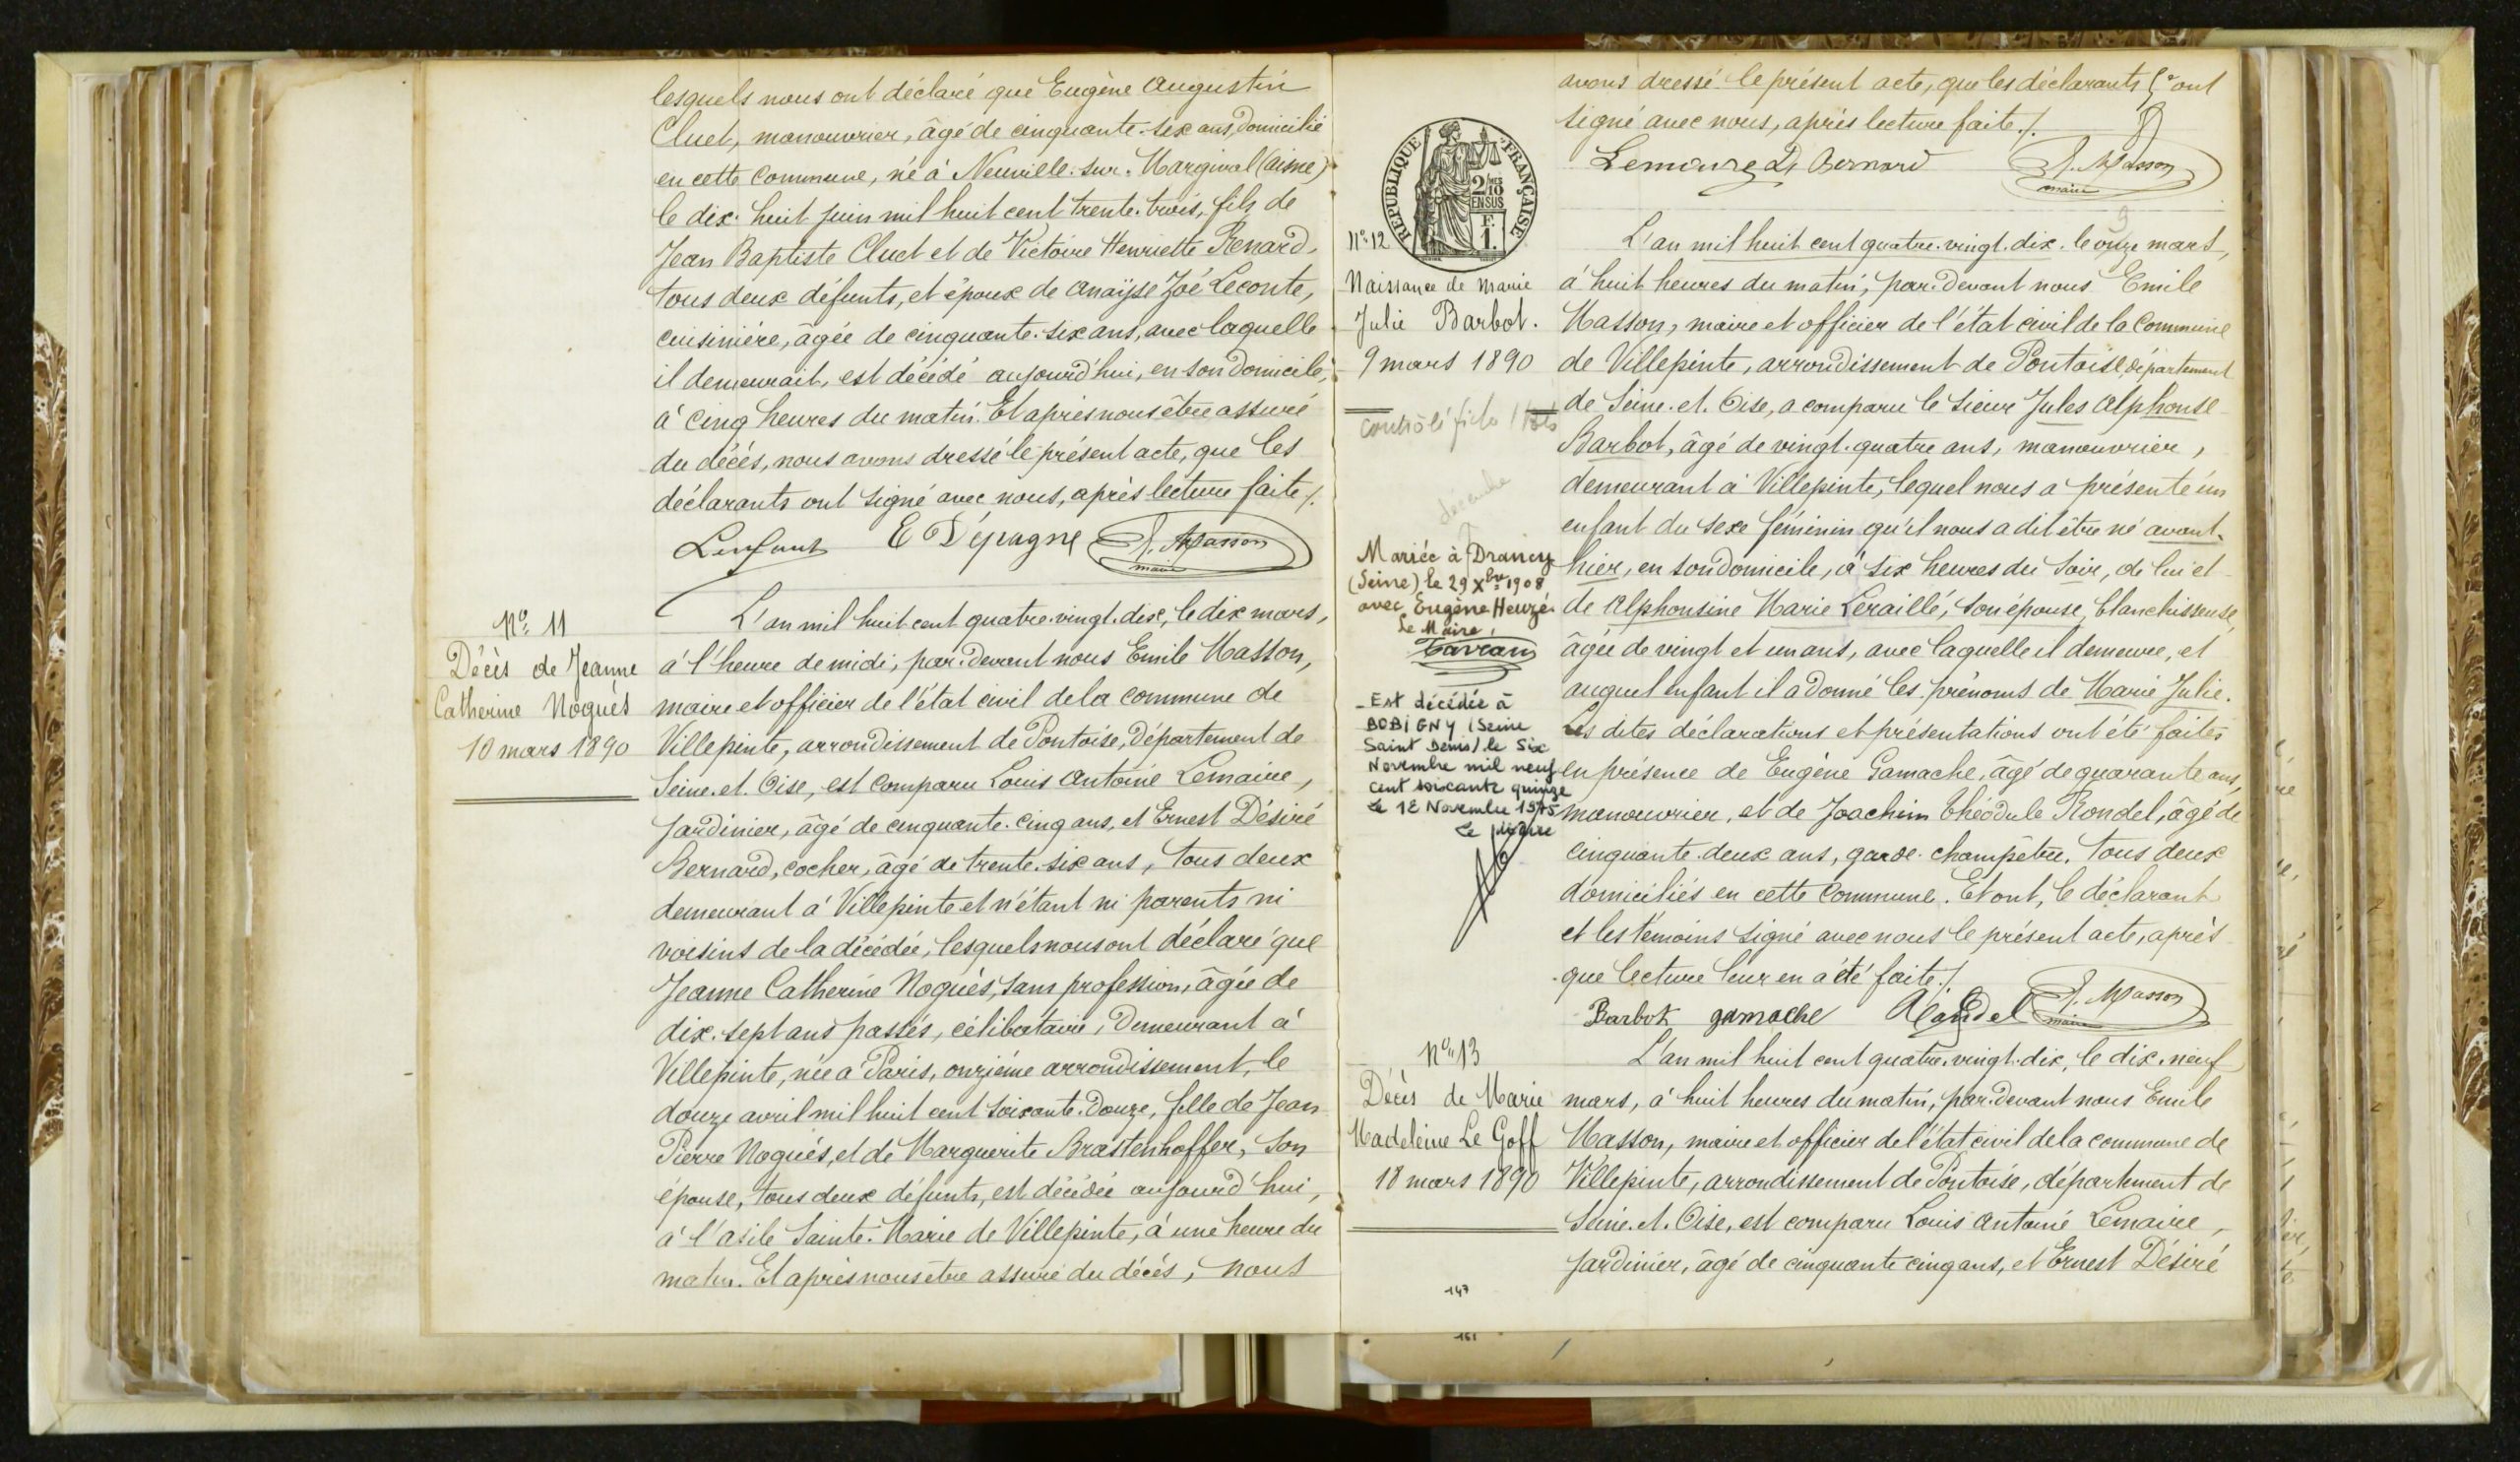 lesquels nous ont déclaré que Eugène Augustin
Cluet, manouvrier, âgé de cinquante-six ans, domicilié
en cette Commune, né à Neuville-sur-Margival (aisne)
le dix-huit juin mil huit cent trente-trois, fils de
Jean Baptiste Cluet et de Victoire Henriette Renard,
tous deux défunts, et époux de Anaïse Zoé Leconte,
cuisinière, âgée de cinquante-six ans, avec laquelle
il demeurait, est décédé aujourd'hui, en son domicile,
à cinq heures du matin. Et après nous être assuré
du décès, nous avons dressé le présent acte, que les
déclarants ont signé avec nous, après lecture faite ./.
Lenfant E Depagne E. Masson
maire
No 11
Décès de Jeanne
Catherine Noguès
10 mars 1890
L'an mil huit cent quatre-vingt-dix, le dix mars,
à l'heure de midi, par-devant nous Emile Masson,
maire et officier de l'état civil de la commune de
Villepinte, arrondissement de Pontoise, Département de
Seine-et-Oise, est comparu Louis Antoine Lemaire,
Jardinier, âgé de cinquante-cinq ans, et Ernest Désiré
Bernard, cocher, âgé de trente-six ans, tous deux
demeurant à Villepinte et n'étant ni parents ni
voisins de la décédée, lesquels nous ont déclaré que
Jeanne Catherine Noguès, sans profession, âgée de
dix-sept ans passés, célibataire, Demeurant à
Villepinte, née à Paris, onzième arrondissement, le
douze avril mil huit cent soixante-douze, fille de Jean
Pierre Noguès, et de Marguerite Brastenhoffer, son
épouse, tous deux défunts, est décédée aujourd'hui,
à l'asile Sainte-Marie de Villepinte, à une heure du
matin. Et après nous être assuré du décès, nous
avons dressé le présent acte, que les déclarants ont
signé avec nous, après lecture faite ./.
Lemaire D. Bernard E. Masson
maire
RÉPUBLIQUE FRANÇAISE
2/10
EN SUS
F.
1.
No 12
Naissance de Marie
Julie Barbot.
9 mars 1890
contrôlé
décembre
Mariée à Drancy
(Seine) le 29 Xbre 1908
avec Eugène Heuzé
Le Maire,
- Est décédée à
BOBIGNY (Seine
Saint Denis) le Six
Novembre mil neuf
cent soixante quinze
Le 12 Novembre 1975
9
L'an mil huit cent quatre-vingt-dix, le onze mars,
à huit heures du matin, par-devant nous Emile
Masson, maire et officier de l'état civil de la Commune
de Villepinte, arrondissement de Pontoise, département
de Seine-et-Oise, a comparu le sieur Jules Alphonse
Barbot, âgé de vingt-quatre ans, manouvrier,
demeurant à Villepinte, lequel nous a présenté un
enfant du sexe féminin qu'il nous a dit être né avant-
hier, en son domicile, à six heures du soir, de lui et
de Alphonsine Marie Leraillé, son épouse, blanchisseuse,
âgée de vingt et un ans, avec laquelle il demeure, et
auquel enfant il a donné les prénoms de Marie Julie.
Les dites déclarations et présentations ont été faites
en présence de Eugène Gamache, âgé de quarante ans,
manouvrier, et de Joachim Théodule Rondel, âgé de
cinquante-deux ans, garde-champêtre, tous deux
domiciliés en cette Commune. Et ont, le déclarant
et les témoins signé avec nous le présent acte, après
que lecture leur en a été faite ./.
Barbot gamache Rondel E. Masson
maire
No 13
Décès de Marie
Madeleine Le Goff
18 mars 1890
L'an mil huit cent quatre-vingt-dix, le dix-neuf
mars, à huit heures du matin, par-devant nous Emile
Masson, maire et officier de l'état civil de la commune de
Villepinte, arrondissement de Pontoise, département de
Seine-et-Oise, est comparu Louis Antoine Lemaire,
Jardinier, âgé de cinquante cinq ans, et Ernest Désiré
147
161